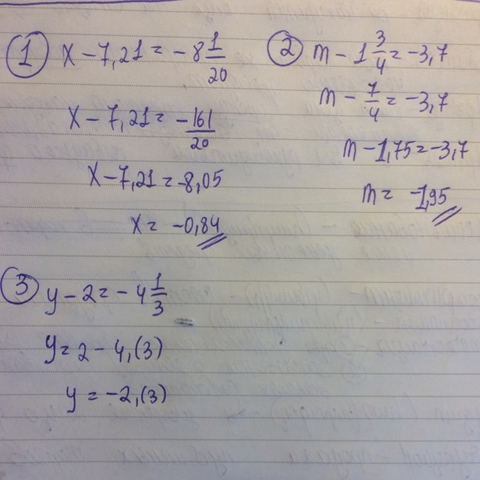 1 x - 7,21 = -8 1/20
x - 7,21 = -161/20
x - 7,21 = -8,05
x = -0,84
2 m - 1 3/4 = -3,7
m - 7/4 = -3,7
m - 1,75 = -3,7
m = -1,95
3 y - 2 = -4 1/3
y = 2 - 4,(3)
y = -2,(3)